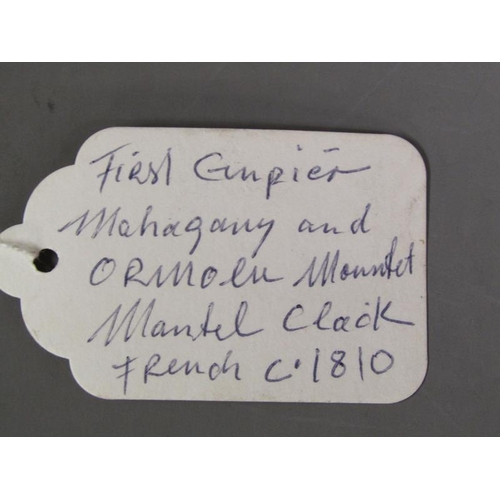 First Empier
Mahagany and
ORMOlu Mountet
Mantel Clock
French c.1810